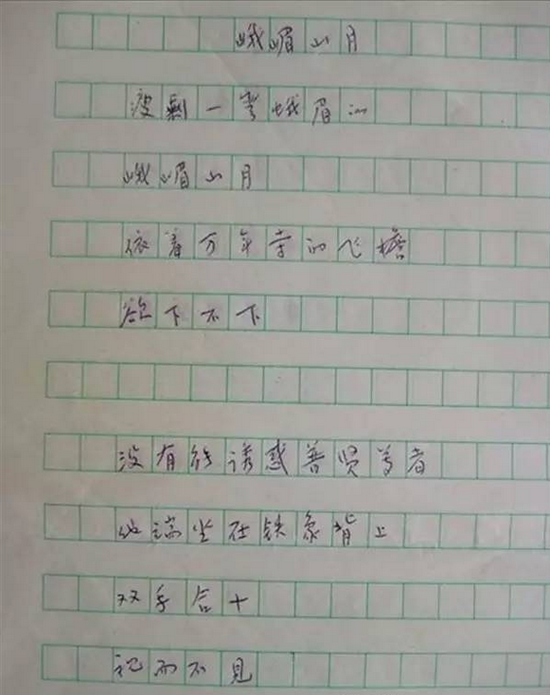 峨嵋山月
瘦剩一弯蛾眉的
峨嵋山月
依着万年寺的飞檐
欲下不下
没有能诱惑普贤尊者
他端坐在铁象背上
双手合十
视而不见